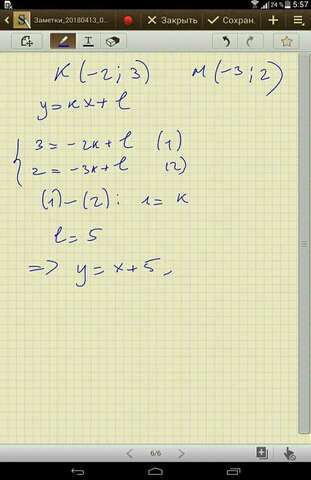 24 % 5:57
Заметки_20180413_0 Закрыть Сохран.
K (-2; 3) M (-3; 2)
y = kx + l
3 = -2k + l (1)
2 = -3k + l (2)
(1) - (2) : 1 = k
l = 5
=> y = x + 5,
6/6